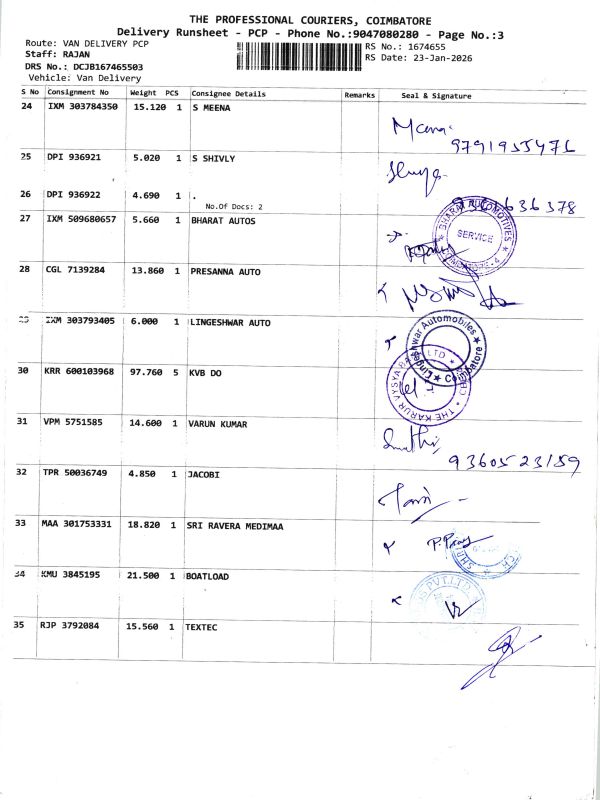 THE PROFESSIONAL COURIERS, COIMBATORE
Delivery Runsheet - PCP - Phone No.:9047080280 - Page No.:3
Route: VAN DELIVERY PCP
RS No.: 1674655
Staff: RAJAN
RS Date: 23-Jan-2026
DRS No.: DCJB167465503
Vehicle: Van Delivery
S No Consignment No Weight PCS Consignee Details Remarks Seal & Signature
24 IXM 303784350 15.120 1 S MEENA
9791955476
25 DPI 936921 5.020 1 S SHIVLY
26 DPI 936922 4.690 1 .
No.Of Docs: 2
636378
27 IXM 509680657 5.660 1 BHARAT AUTOS
BHARAT AUTOMOTIVES
SERVICE
28 CGL 7139284 13.860 1 PRESANNA AUTO
IXM 303793405 6.000 1 LINGESHWAR AUTO
Lingeshwar Automobiles
Coimbatore
30 KRR 600103968 97.760 5 KVB DO
THE KARUR VYSYA LTD
31 VPM 5751585 14.600 1 VARUN KUMAR
9360523159
32 TPR 50036749 4.850 1 JACOBI
33 MAA 301753331 18.820 1 SRI RAVERA MEDIMAA
34 KMU 3845195 21.500 1 BOATLOAD
PVT.LTD
35 RJP 3792084 15.560 1 TEXTEC